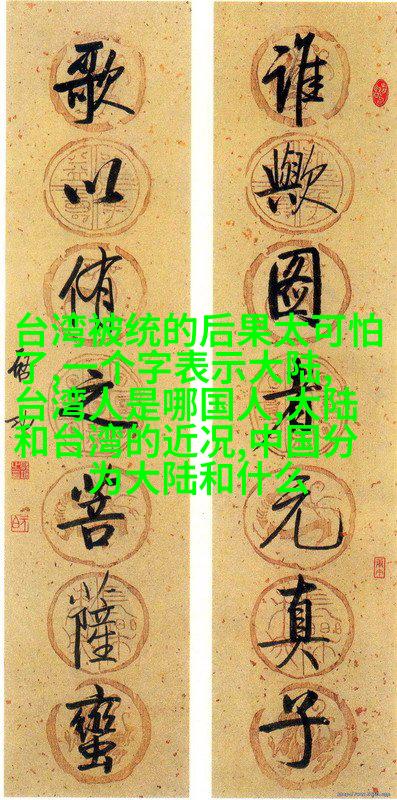 谁歟图者元真子
歌以侑之菩薩蠻
台湾被统的后果太可怕
了,一个字表示大陆,
台湾人是哪国人,大陆
和台湾的近况,中国分
为大陆和什么